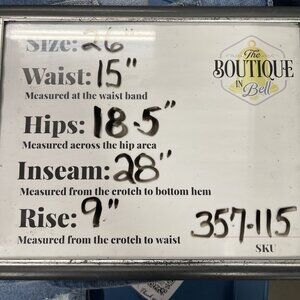 Size: 26"
The
BOUTIQUE
IN
Bell
Waist: 15"
Measured at the waist band
Hips: 18.5"
Measured across the hip area
Inseam: 28"
Measured from the crotch to bottom hem
Rise: 9"
Measured from the crotch to waist
357-115
SKU